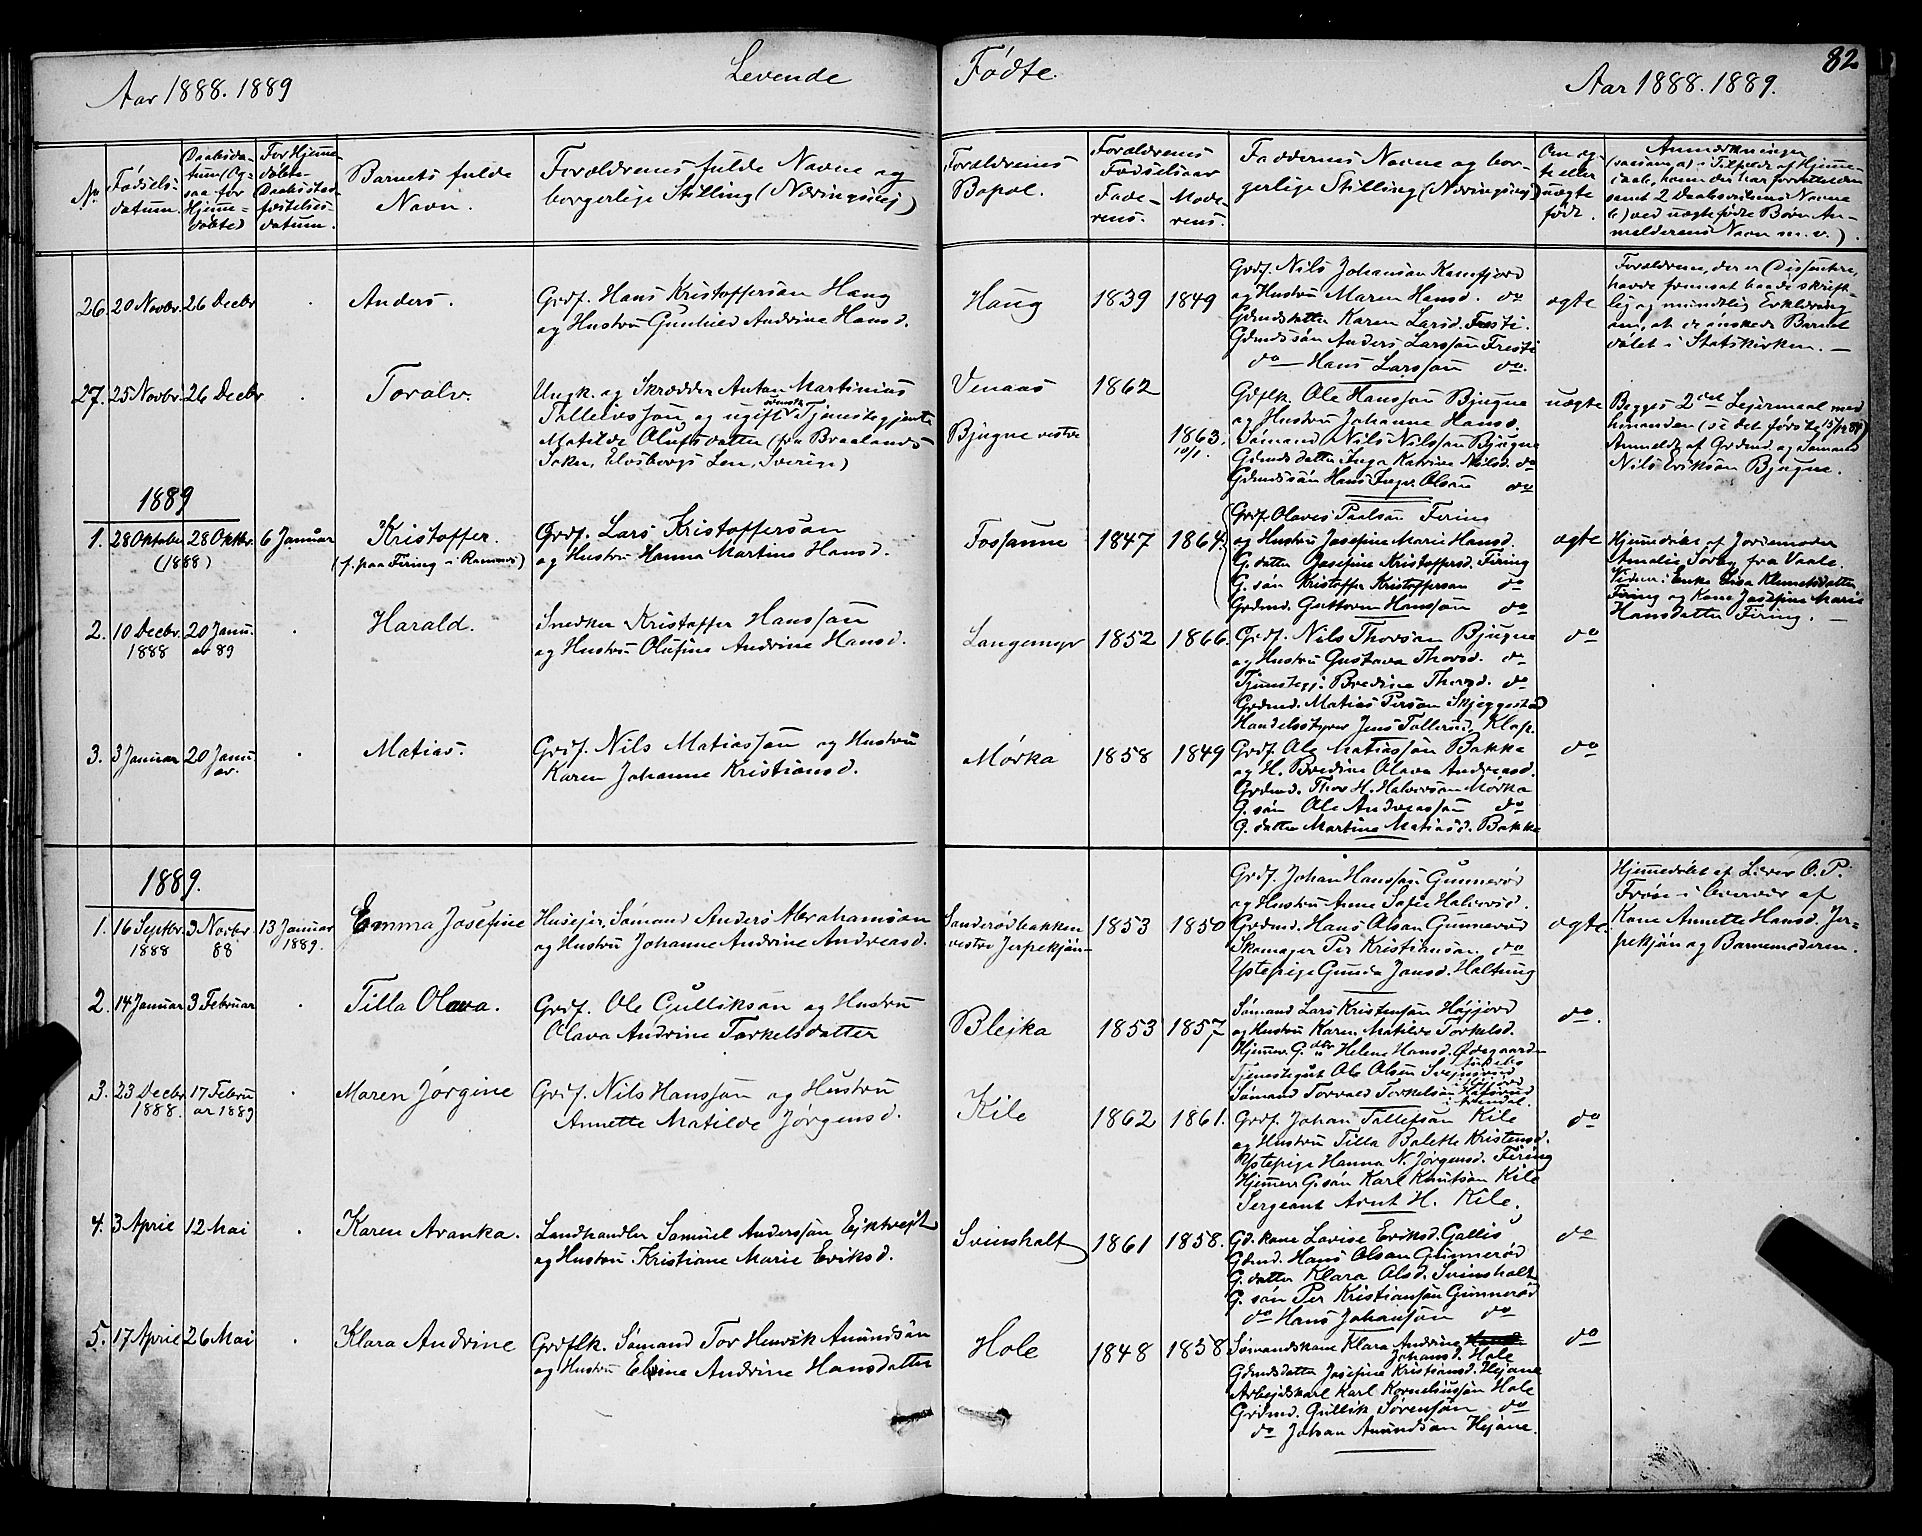 82
Aar 1888. 1889
Levende
Fødte.
Aar 1888. 1889.
No
Fødsels-
datum.
Daabsda-
tum (Og-
saa for
Hjemme-
døbte)
For Hjemme-
døbte
Daabsstad-
fæstelses-
datum.
Barnets fulde
Navn.
Forældrenes fulde Navne og
borgerlige Stilling (Næringsvej)
Forældrenes
Bopæl.
Forældrenes
Fødselsaar
Fade-
rens.
Mode-
rens.
Faddernes Navne og bor-
gerlige Stilling (Næringsvej)
Om æg-
te eller
uægte
født.
Anmærkninger
samt 2 Daabsvidners Navne
b) ved uægtefødte Børn An-
melderens Navn m. v.)
26. 20 Novbr. 26 Decbr
Anders.
Grdf. Hans Kristoffersøn Haug
og Hustru Gunhild Andrine Hansd.
Haug 1839 1849
Grdf. Nils Johansøn Kamfjord
og Hustru Maren Hansd. do
Gdmdsdatter Karen Larsd. Fresti.
Gdmdssøn Anders Larssøn Fresti
do — Hans Larssøn do.
ægte
Forældrene, der er Dissentere,
havde fremsat baade skrift-
lig og mundlig Erklæring
om, at de ønskede Barnet
døbt i Statskirken. —
27. 25 Novbr. 26 Decbr
Toralv.
Ungk. og Skrædder Anton Martinius
Tallevssøn og ugift svensk Tjenestepjente
Matilde Olufsdatter (fra Braalanda
Soken, Elvsborgs Len, Sverige)
Venaas
Bjugne vestre
1862
1863.
10/1.
Gdflk. Ole Hanssøn Bjugne
og Hustru Johanne Hansd.
Sømand Nils Nilssøn Bjugne
Gdmdsdatter Inga Katrine Nilsd. do
Gdmdssøn Hans Olsøn do
uægte
Begges 2det Lejermaal med
hinanden
Anmeldt af Grdmd og Sømand
Nils Eriksøn Bjugne.
1889
1. 28 Oktober 28 Oktbr. 6 Januar
(1888)
Kristoffer.
(f. paa Firing i Ramnes)
Grdf. Lars Kristoffersøn
og Hustru Hanna Martine Hansd.
Fossanne 1847 1864.
Grdf. Olaves Paulsøn Firing
og Hustru Josefine Marie Hansd.
G. datter Josefine Kristoffersd. Firing
G. søn Kristoffer Kristoffersøn do
Grdmd. Guttorm Hanssøn do
ægte
Hjemmedøbt af Jordemoder
Amalie Sørby fra Vaale.
Vidner: Enke Lisa Klemetsdatter
Firing og Kone Josefine Marie
Hansdatter Firing. —
2. 10 Decbr. 20 Janu-
1888 ar 89
Harald.
Snedker Kristoffer Hanssøn
og Hustru Olufine Andrine Hansd.
Langemyr 1852 1866.
Grdf. Nils Thorsøn Bjugne
og Hustru Gustava Thorsd. do
Tjenestepj. Bredine Thorsd. do
Grdmd. Matias Persøn Skjeggestad
Handelsstyrer Jens Tallefsrud, Klop.
do
3. 3 Januar 20 Janu-
ar.
Matias.
Grdf. Nils Matiassøn og Hustru
Karen Johanne Kristiansd.
Mørka 1858 1849
Grdf. Ole Matiassøn Bakke
og H. Bredine Olava Andreasd.
Grdmd. Thor H. Halvorsøn Mørka
G. søn Ole Andreassøn do
G. datter Martine Matiasd. Bakke
do
1889.
1. 16 Septbr. 3 Novbr. 13 Januar
1888 88 1889.
Emma Josefine
Husejer, Sømand Anders Abrahamsøn
og Hustru Johanne Andrine Andreasd.
Sanderødbakken
vestre Jerpekjøn
1853 1850
Grdf. Johan Hanssøn Gunnerød
og Hustru Anne Sofie Halvorsd.
Grdmd. Hans Olsøn Gunnerød
Skomager Per Kristiansøn do
Ystepige Gunda Jonsd. Haltung
ægte.
Hjemmedøbt af Lærer O. P.
Frøse i Overvær af
Kone Annette Hansd. Jer-
pekjøn og Barnemoderen.
2. 14 Januar 3 Februar
Tilla Olava.
Grdf. Ole Gulliksøn og Hustru
Olava Andrine Torkelsdatter
Blejka 1853 1857
Sømand Lars Kristensøn Højjord
og Hustru Karen Matilde Torkelsd.
Hjemmev. G. dtr Helene Hansd. Ødegaarden
Tjenestegut Ole Olsøn
Sømand Torvald Torkelsøn
do.
3. 23 Decbr 17 Febru
1888. ar 1889
Maren Jørgine
Grdf. Nils Hanssøn og Hustru
Annette Matilde Jørgensd.
Kile 1862 1861.
Grdf. Johan Tallefsøn Kile
og Hustru Tilla Bolette Kristensd.
Ystepige Hanna N. Jørgensd. Firing
Hjemmev. G. søn Karl Knutsøn Kile
Sergeant Arnt H. Kile.
do
4. 3 April 12 Mai
Karen Aranka.
Landhandler Samuel Anderssøn Ejktvejt
og Hustru Kristiane Marie Eriksd.
Svinsholt 1861 1858.
Gd. kone Lovise Eriksd. Gallis
Gdmd. Hans Olsøn Gunnerød
G. datter Klara Olsd. Svinsholt
G. søn Per Kristiansøn Gunnerød
do Hans Johansøn do
do
5. 17 April 26 Mai
Klara Andrine
Grdflk. Sømand Tor Henrik Amundsøn
og Hustru Elvine Andrine Hansdatter
Hole 1848 1858
Sømandskone Klara Andrine
Johansd. Hole
Gdmdsdatter Josefine Kristiansd. Hejane
Arbejdskarl Karl Korneliussøn Hole
Grdmd. Gullik Sørensøn do
do Johan Amundsøn Hejane.
do